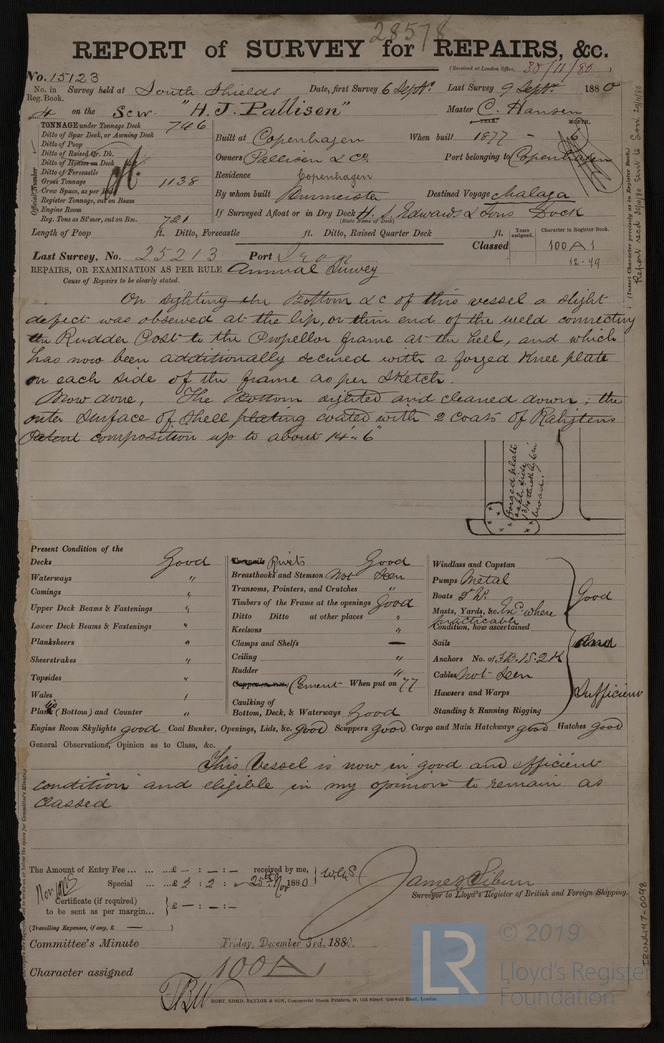 28578
REPORT of SURVEY for REPAIRS, &c.
(Received at London Office, 30/11/80
No. 15123
No. in Reg. Book. Survey held at South Shields Date, first Survey 6 Septr. Last Survey 9 Septr. 1880
4 on the Scw. "H. J. Pallisen" Master C. Hansen
TONNAGE under Tonnage Deck 746
Ditto of Spar Deck, or Awning Deck
Ditto of Poop
Ditto of Raised Qr. Dk.
Ditto of Forecastle
Gross Tonnage 1138
Crew Space, as per
Register Tonnage, cut on Beam
Engine Room
Reg. Tons as St'mer, cut on Bm. 721
Official Number
Built at Copenhagen When built 1877 MONTH. 6
Owners Pallisen & Co. Port belonging to Copenhagen
Residence Copenhagen
By whom built Burmeister Destined Voyage Malaga
If Surveyed Afloat or in Dry Dock H. S. Edwards & Sons Dock
(State Name of Dock)
Length of Poop ft. Ditto, Forecastle ft. Ditto, Raised Quarter Deck ft.
Last Survey, No. 25213 Port
Classed Years assigned. Character in Register Book. 100A1
12-79
REPAIRS, OR EXAMINATION AS PER RULE Annual Survey
Cause of Repairs to be clearly stated.
On sighting the Bottom &c of this vessel a slight
defect was observed at the lip, or thin end of the weld connecting
the Rudder Post to the Propellor frame at the heel, and which
has now been additionally secured with a forged Knee plate
on each side of the frame as per sketch.
Now done, The Bottom sighted and cleaned down; the
outer surface of shell plating coated with 2 coats of Rahtjens
Patent composition up to about 14'-6"
forged plate
each side
broad.
Present Condition of the
Decks Good
Waterways "
Comings "
Upper Deck Beams & Fastenings "
Lower Deck Beams & Fastenings "
Planksheers "
Sheerstrakes "
Topsides "
Wales "
(Bottom) and Counter "
Rivets Good
Breasthooks and Stemson Not Seen
Transoms, Pointers, and Crutches "
Timbers of the Frame at the openings Good
Ditto Ditto at other places "
Keelsons "
Clamps and Shelfs —
Ceiling "
Rudder "
Cement When put on 77
Caulking of
Bottom, Deck, & Waterways Good
Windlass and Capstan
Pumps Metal
Boats
Masts, Yards, &c. In where practicable
Condition, how ascertained
Sails
Anchors No. of 3B. 1S. 2K
Cables Not Seen
Hawsers and Warps
Standing & Running Rigging
Good
and
Sufficient
Engine Room Skylights good Coal Bunker, Openings, Lids, &c. good Scuppers good Cargo and Main Hatchways good Hatches good
General Observations, Opinion as to Class, &c.
This Vessel is now in good and efficient
condition and eligible in my opinion to remain as
classed
The Amount of Entry Fee ... ... ... £ - : - : - received by me,
Special ... ... £ 2 : 2 : - 25th Novr 1880
Certificate (if required) to be sent as per margin... £ - : - : -
(Travelling Expenses, if any, £ —— )
Surveyor to Lloyd's Register of British and Foreign Shipping.
Committee's Minute Friday, December 3rd, 1880.
Character assigned 100A1
ROBT. EDMD. TAYLOR & SON, Commercial Steam Printers, 19, Old Street Goswell Road, London
IRON147-0098
LR
© 2019
Lloyd's Register
Foundation